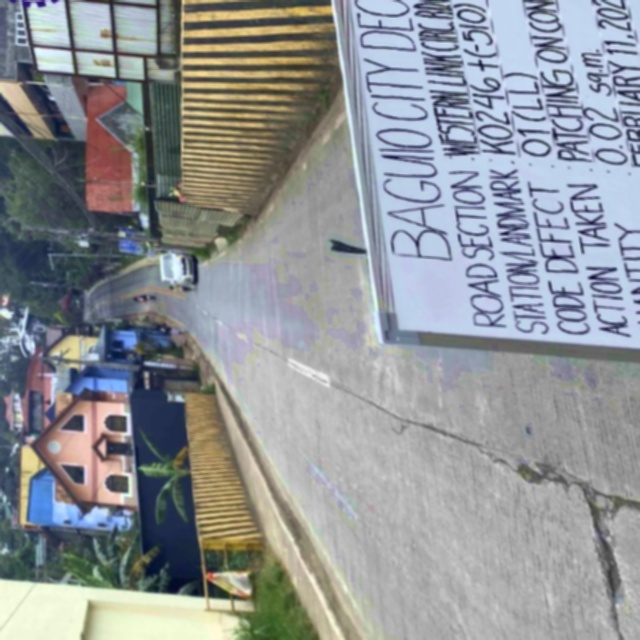 BAGUIO CITY DEO
ROAD SECTION : WESTERN LINK CIRCUM
STATION/LANDMARK : K0246+(-50
CODE DEFECT : 01 (LL)
ACTION TAKEN : PATCHING ON CON
0.02 sq.m.
11, 202